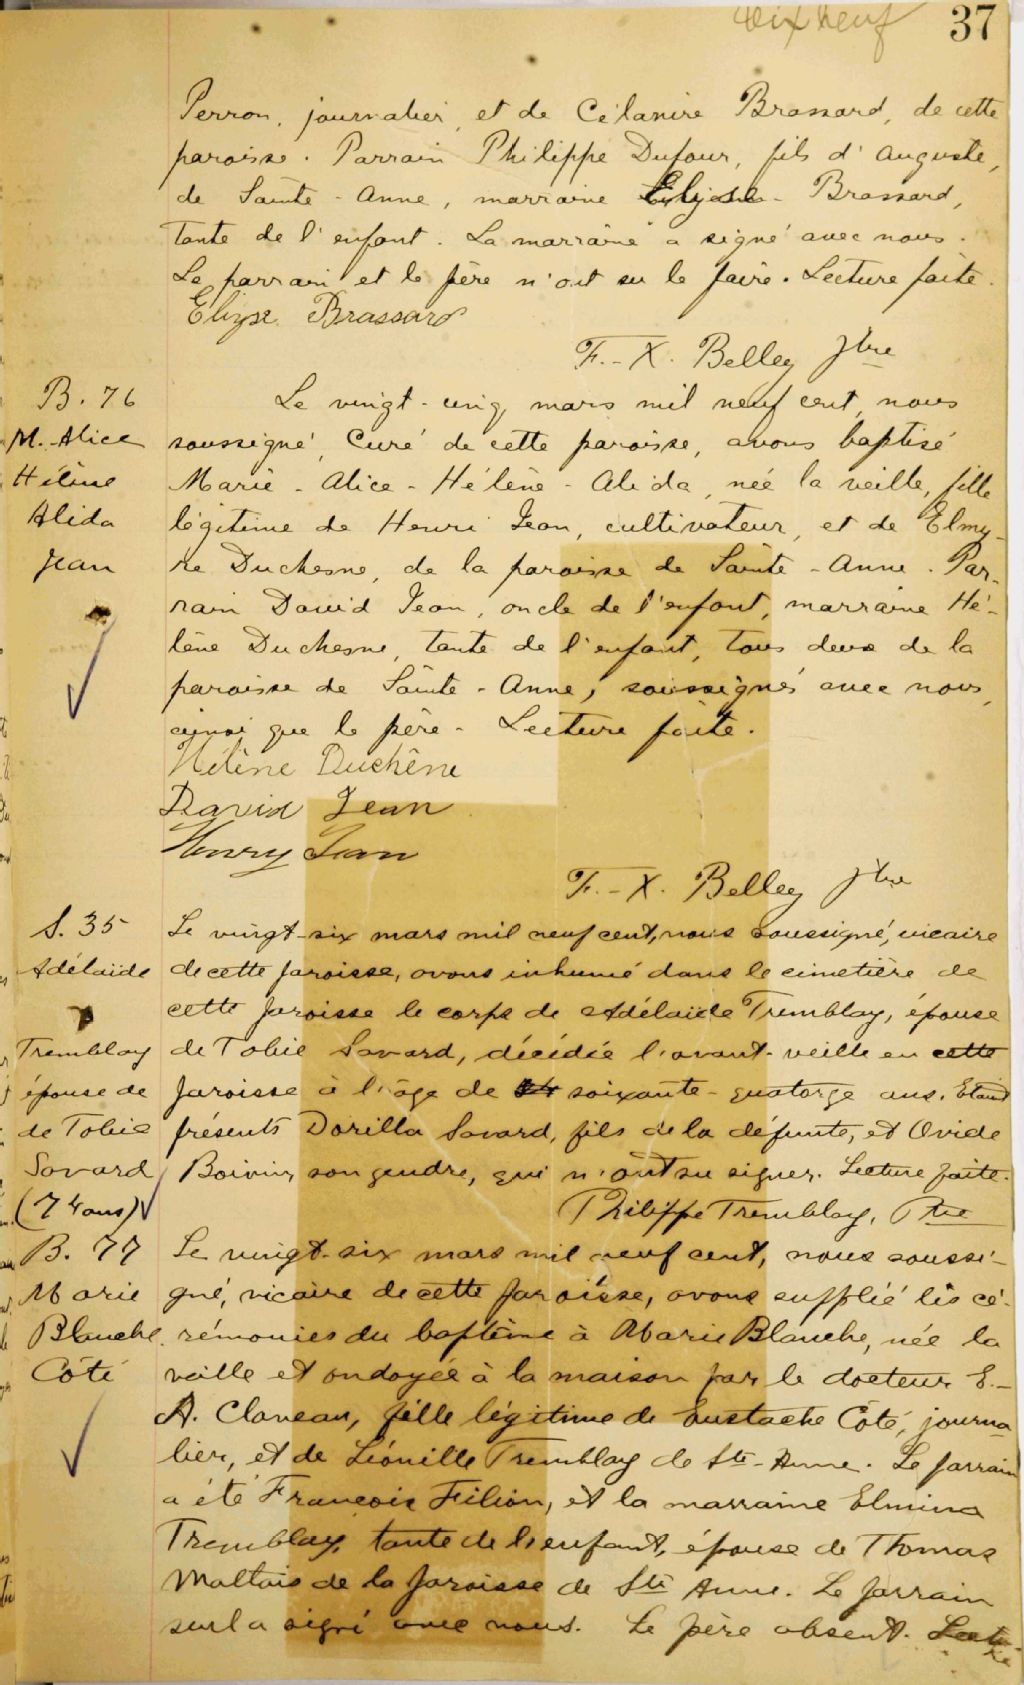 dix neuf
37
Perron, journalier, et de Célanire Brassard, de cette
paroisse. Parrain Philippe Dufour, fils d'Auguste,
de Sainte-Anne, marraine Brassard,
tante de l'enfant. La marraine a signé avec nous.
Le parrain et le père n'ont su le faire. Lecture faite.
Elizse Brassard
F.-X. Belley Ptre
B. 76
M. Alice
Hélène
Alida
Jean
Le vingt-cinq mars mil neuf cent, nous
soussigné, Curé de cette paroisse, avons baptisé
Marie-Alice-Hélène-Alida, née la veille, fille
légitime de Henri Jean, cultivateur, et de Elmy-
re Duchesne, de la paroisse de Sainte-Anne. Par-
rain David Jean, oncle de l'enfant, marraine Hé-
lène Duchesne, tante de l'enfant, tous deux de la
paroisse de Sainte-Anne, soussignés avec nous,
ainsi que le père. Lecture faite.
Hélène Duchêne
David Jean
Henry Jean
F.-X. Belley Ptre
S. 35
Adélaïde
Tremblay
épouse de
de Tobie
Savard
(74 ans)
Le vingt-six mars mil neuf cent, nous soussigné, vicaire
de cette paroisse, avons inhumé dans le cimetière de
cette paroisse le corps de Adélaïde Tremblay, épouse
de Tobie Savard, décédée l'avant-veille en cette
paroisse à l'âge de soixante-quatorze ans. Etant
présents Dorilla Savard, fils de la défunte, et Ovide
Boivin, son gendre, qui n'ont su signer. Lecture faite.
Philippe Tremblay, Ptre
B. 77
Marie
Blanche
Côté
Le vingt-six mars mil neuf cent, nous soussi-
gné, vicaire de cette paroisse, avons supplié les cé-
rémonies du baptême à Marie Blanche, née la
veille et ondoyée à la maison par le docteur E.-
A. Claveau, fille légitime de Eustache Côté, journa
lier, et de Léonille Tremblay de Ste-Anne. Le parrain
a été François Filion, et la marraine Elmina
Tremblay, tante de l'enfant, épouse de Thomas
Maltais de la paroisse de Ste Anne. Le parrain
seul a signé avec nous. Le père absent. Lectu
re